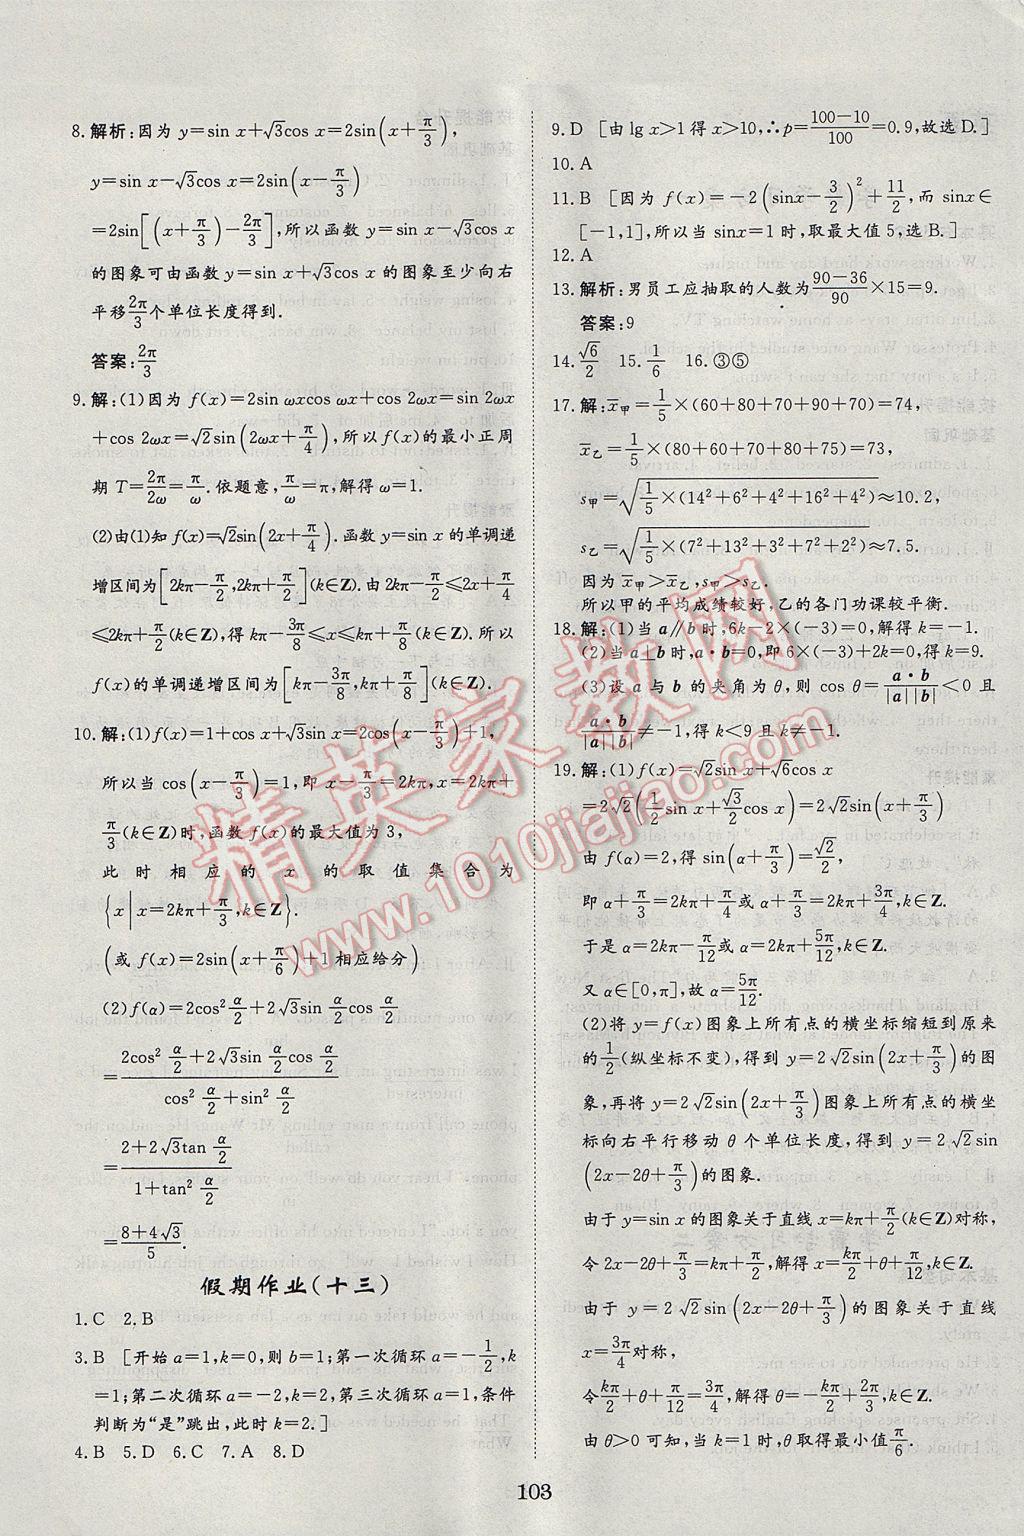 8.解析:因为 y=sin x+√3cos x=2sin(x+π/3),
y=sin x−√3cos x=2sin(x−π/3)
=2sin[(x+π/3)−2π/3],所以函数 y=sin x−√3cos x
的图象可由函数 y=sin x+√3cos x 的图象至少向右
平移2π/3个单位长度得到.
答案:2π/3
9.解:(1)因为 f(x)=2sin ωxcos ωx+cos 2ωx=sin 2ωx
+cos 2ωx=√2sin(2ωx+π/4),所以 f(x)的最小正周
期 T=2π/2ω=π/ω.依题意,π/ω=π,解得 ω=1.
(2)由(1)知 f(x)=√2sin(2x+π/4).函数 y=sin x 的单调递
增区间为[2kπ−π/2,2kπ+π/2](k∈Z).由 2kπ−π/2≤2x+π/4
≤2kπ+π/2(k∈Z),得 kπ−3π/8≤x≤kπ+π/8(k∈Z).所以
f(x)的单调递增区间为[kπ−3π/8,kπ+π/8](k∈Z).
10.解:(1)f(x)=1+cos x+√3sin x=2cos(x−π/3)+1,
所以当 cos(x−π/3)=1,即 x−π/3=2kπ,x=2kπ+
π/3(k∈Z)时,函数 f(x)的最大值为 3,
此时相应的 x 的取值集合为
{x|x=2kπ+π/3,k∈Z}.
(或 f(x)=2sin(x+π/6)+1 相应给分)
(2)f(α)=2cos² α/2+2√3sin α/2 cos α/2
=(2cos² α/2+2√3sin α/2 cos α/2)/(cos² α/2+sin² α/2)
=(2+2√3tan α/2)/(1+tan² α/2)
=(8+4√3)/5.
假期作业(十三)
1.C 2.B
3.B [开始 a=1,k=0,则 b=1;第一次循环 a=−1/2,k
=1;第二次循环 a=−2,k=2,第三次循环 a=1,条件
判断为“是”跳出,此时 k=2.]
4.B 5.D 6.C 7.A 8.D
9.D [由 lg x>1 得 x>10,∴p=(100−10)/100=0.9,故选 D.]
10.A
11.B [因为 f(x)=−2(sinx−3/2)²+11/2,而 sinx∈
[−1,1],所以当 sinx=1 时,取最大值 5,选 B.]
12.A
13.解析:男员工应抽取的人数为(90−36)/90×15=9.
答案:9
14.√6/2 15.1/6 16.③⑤
17.解:x̄甲=1/5×(60+80+70+90+70)=74,
x̄乙=1/5×(80+60+70+80+75)=73,
s甲=√(1/5×(14²+6²+4²+16²+4²))≈10.2,
s乙=√(1/5×(7²+13²+3²+7²+2²))≈7.5.
因为 x̄甲>x̄乙,s甲>s乙.
所以甲的平均成绩较好,乙的各门功课较平衡.
18.解:(1)当 a∥b 时,6k−2×(−3)=0,解得 k=−1.
(2)当 a⊥b 时,a·b=0,即 6×(−3)+2k=0,得 k=9.
(3)设 a 与 b 的夹角为 θ,则 cos θ=a·b/|a||b|<0 且
a·b/|a||b|≠−1,得 k<9 且 k≠−1.
19.解:(1)f(x)=√2sin x+√6cos x
=2√2(1/2sin x+√3/2cos x)=2√2sin(x+π/3)
由 f(α)=2,得 sin(α+π/3)=√2/2,
即 α+π/3=2kπ+π/4或 α+π/3=2kπ+3π/4,k∈Z.
于是 α=2kπ−π/12或 α=2kπ+5π/12,k∈Z.
又 α∈[0,π],故 α=5π/12.
(2)将 y=f(x)图象上所有点的横坐标缩短到原来
的1/2(纵坐标不变),得到 y=2√2sin(2x+π/3)的图
象,再将 y=2√2sin(2x+π/3)图象上所有点的横坐
标向右平行移动 θ 个单位长度,得到 y=2√2sin
(2x−2θ+π/3)的图象.
由于 y=sin x 的图象关于直线 x=kπ+π/2(k∈Z)对称,
令 2x−2θ+π/3=kπ+π/2,解得 x=kπ/2+θ+π/12,k∈Z.
由于 y=2√2sin(2x−2θ+π/3)的图象关于直线
x=3π/4对称,
令kπ/2+θ+π/12=3π/4,解得 θ=−kπ/2+2π/3,k∈Z.
由 θ>0 可知,当 k=1 时,θ取得最小值π/6.
103
精英家教网
www.1010jiajiao.com